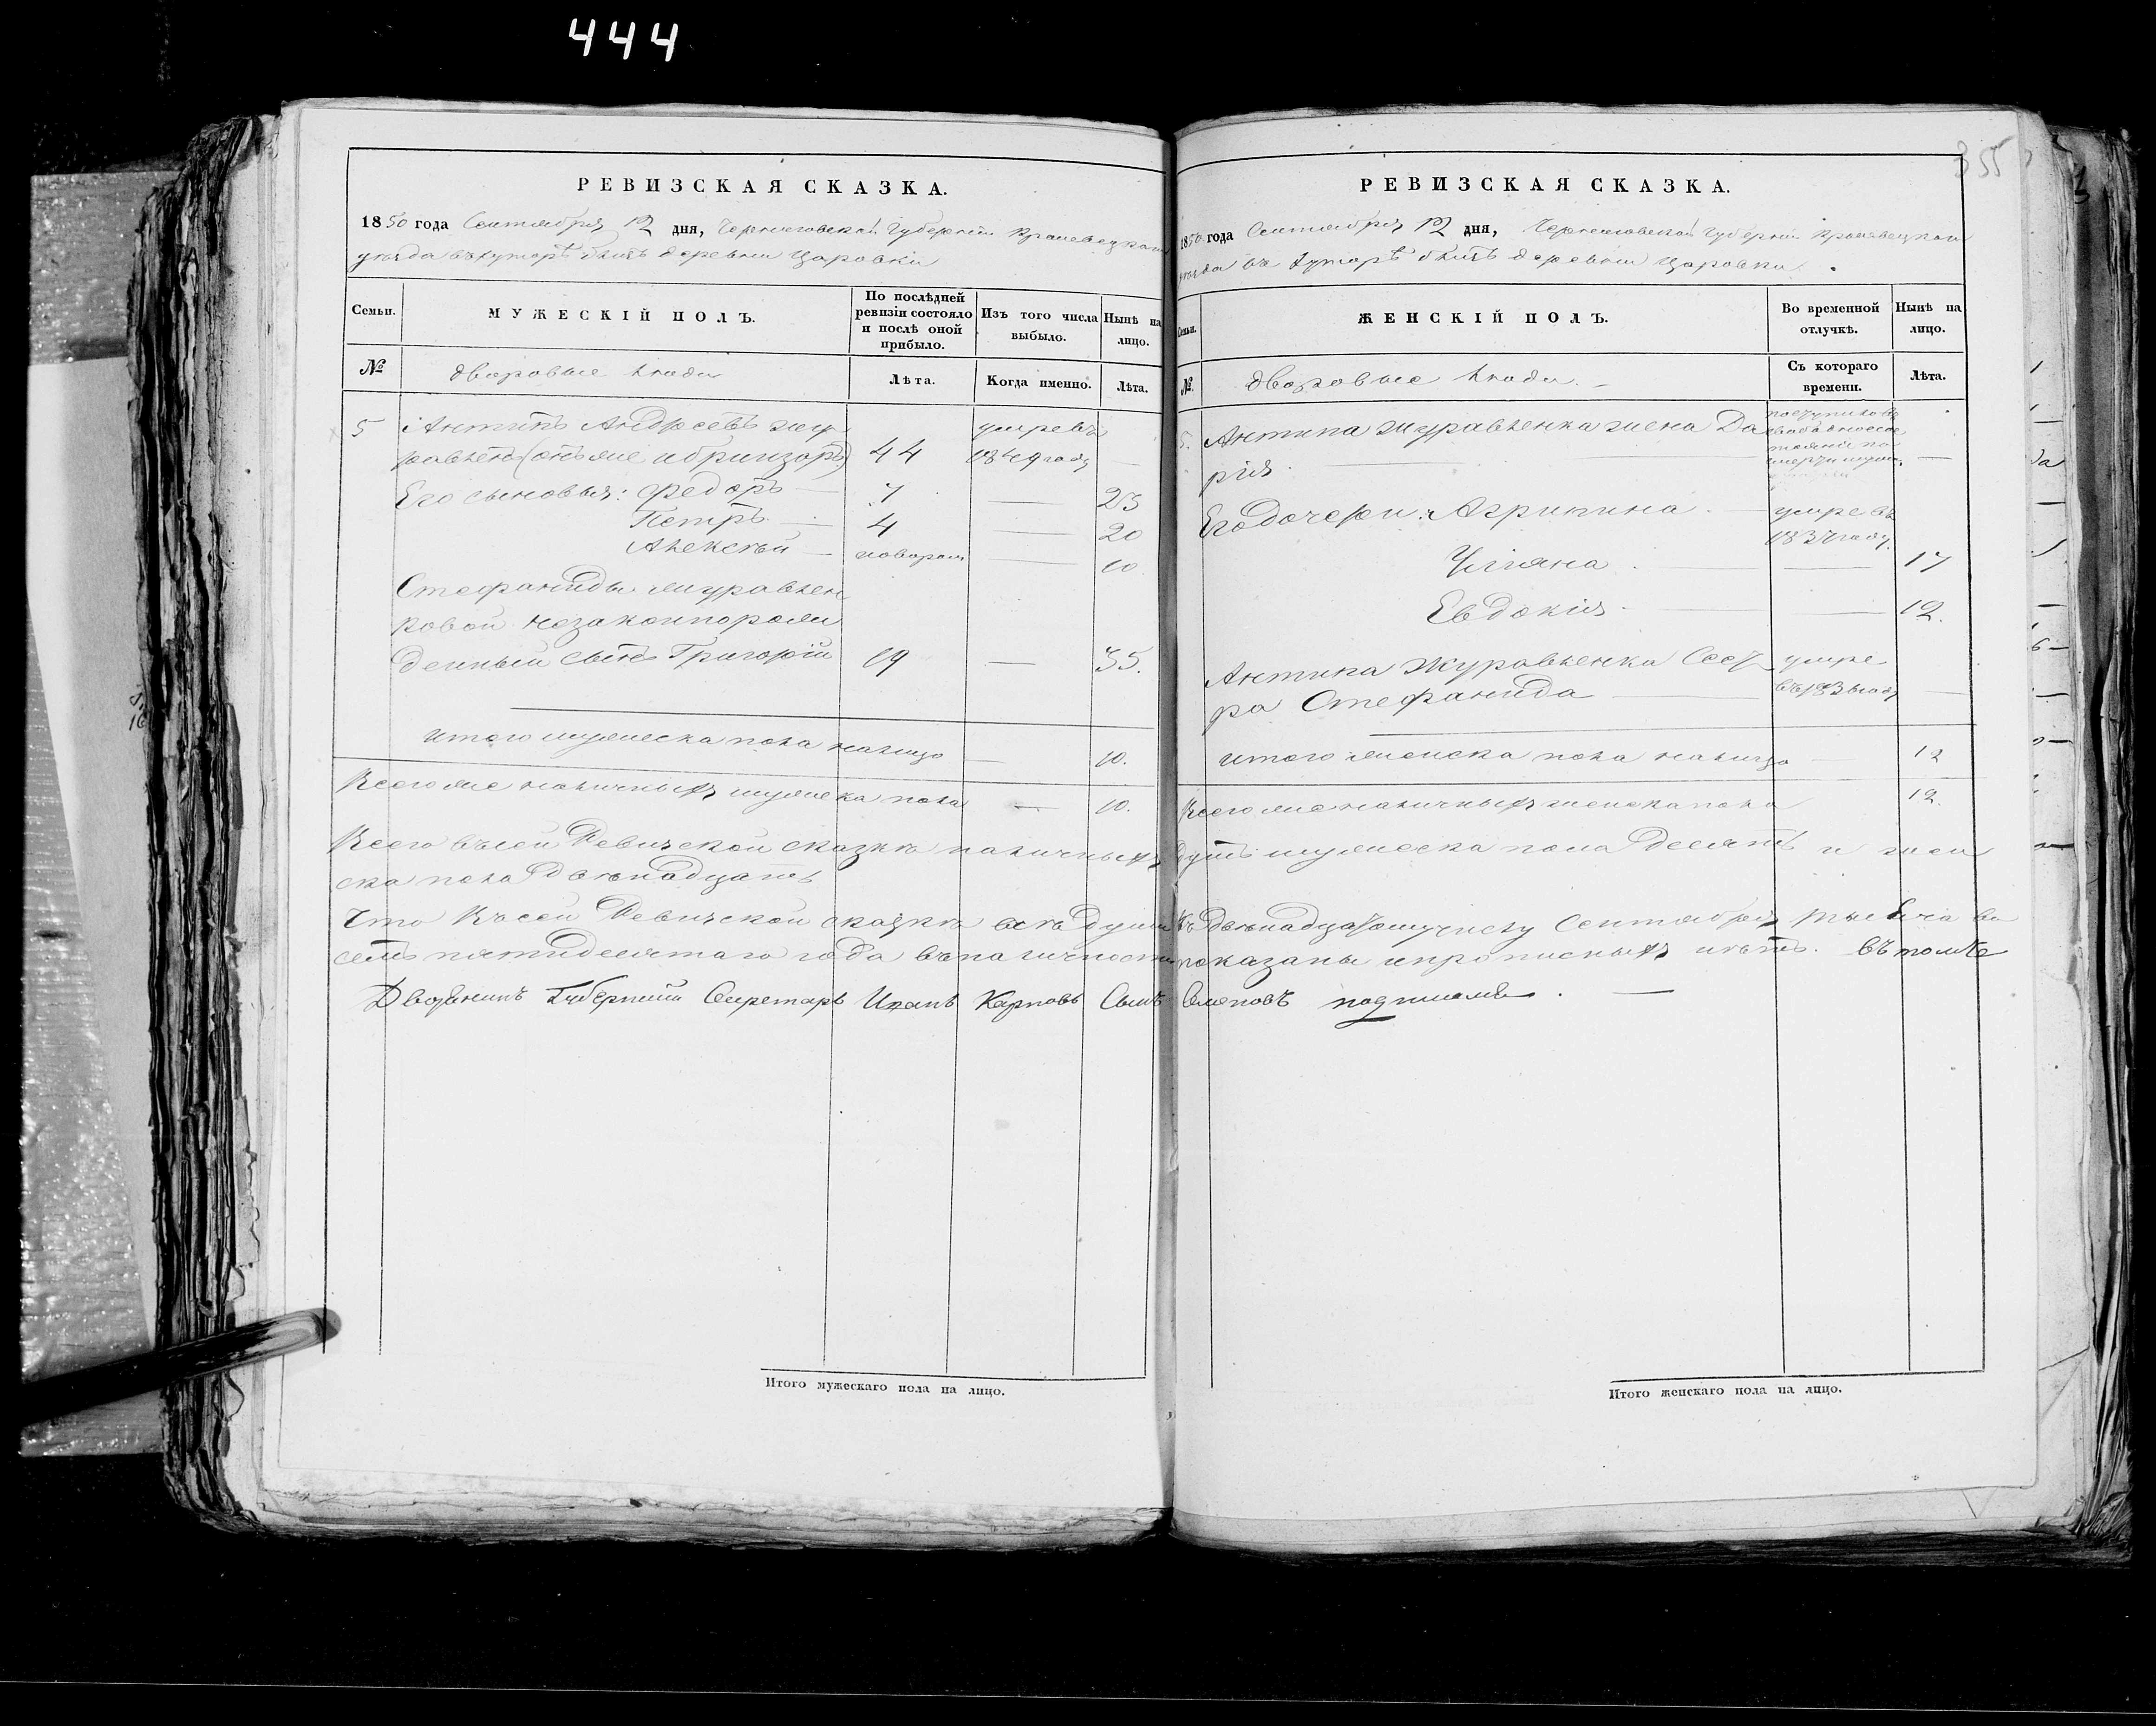 444
РЕВИЗСКАЯ СКАЗКА.
1850 года Сентября 12 дня, Черниговской Губерніи Кролевецкого
уѣзда въ хуторѣ близь деревни Царовки
Семьи.
МУЖЕСКІЙ ПОЛЪ.
По послѣдней ревизіи состояло и послѣ оной прибыло.
Изъ того числа выбыло.
Нынѣ на лицо.
№
дворовые люди
Лѣта.
Когда именно.
Лѣта.
5 Антипъ Андреевъ жур умре въ
44 1849 году —
Его сыновья: Федоръ — 7 — 23
Петръ — 4 — 20
Алексѣй — новорож — 10
Стефаниды журавлен
ковой незаконнорож
денный сынъ Григорій 19 — 35.
Итого мужеска пола налицо — 10.
Всего же наличныхъ мужеска пола — 10.
355
РЕВИЗСКАЯ СКАЗКА.
1850 года Сентября 12 дня, Черниговской Губерніи Кролевецкого
уѣзда въ хуторѣ близь деревни Царовки.
Семьи.
ЖЕНСКІЙ ПОЛЪ.
Во временной отлучкѣ.
Нынѣ на лицо.
№.
дворовые люди. —
Съ котораго времени.
Лѣта.
5. Антипа Журавленка жена Да
рія —
Его дочери: Агрипина — умре въ
1837 году.
Уліяна — — 17
Евдокія — — 12.
Антипа Журавленка Сест умре
ра Стефанида — въ —
Итого женска пола налицо — 12
Всего же наличныхъ женска пола 12.
Всего въ сей Ревизской сказкѣ наличныхъ душъ мужеска пола десять и жен
ска пола двѣнадцать
Что въ сей Ревизской сказкѣ всѣ души къ двѣнадцатому числу Сентября тысяча во
семь пятидесятаго года въ наличности показаны и прописныхъ нѣтъ. въ томъ
Дворянинъ Губернскій Секретарь Иванъ Карповъ Сынъ
Итого мужескаго пола на лицо.
Итого женскаго пола на лицо.